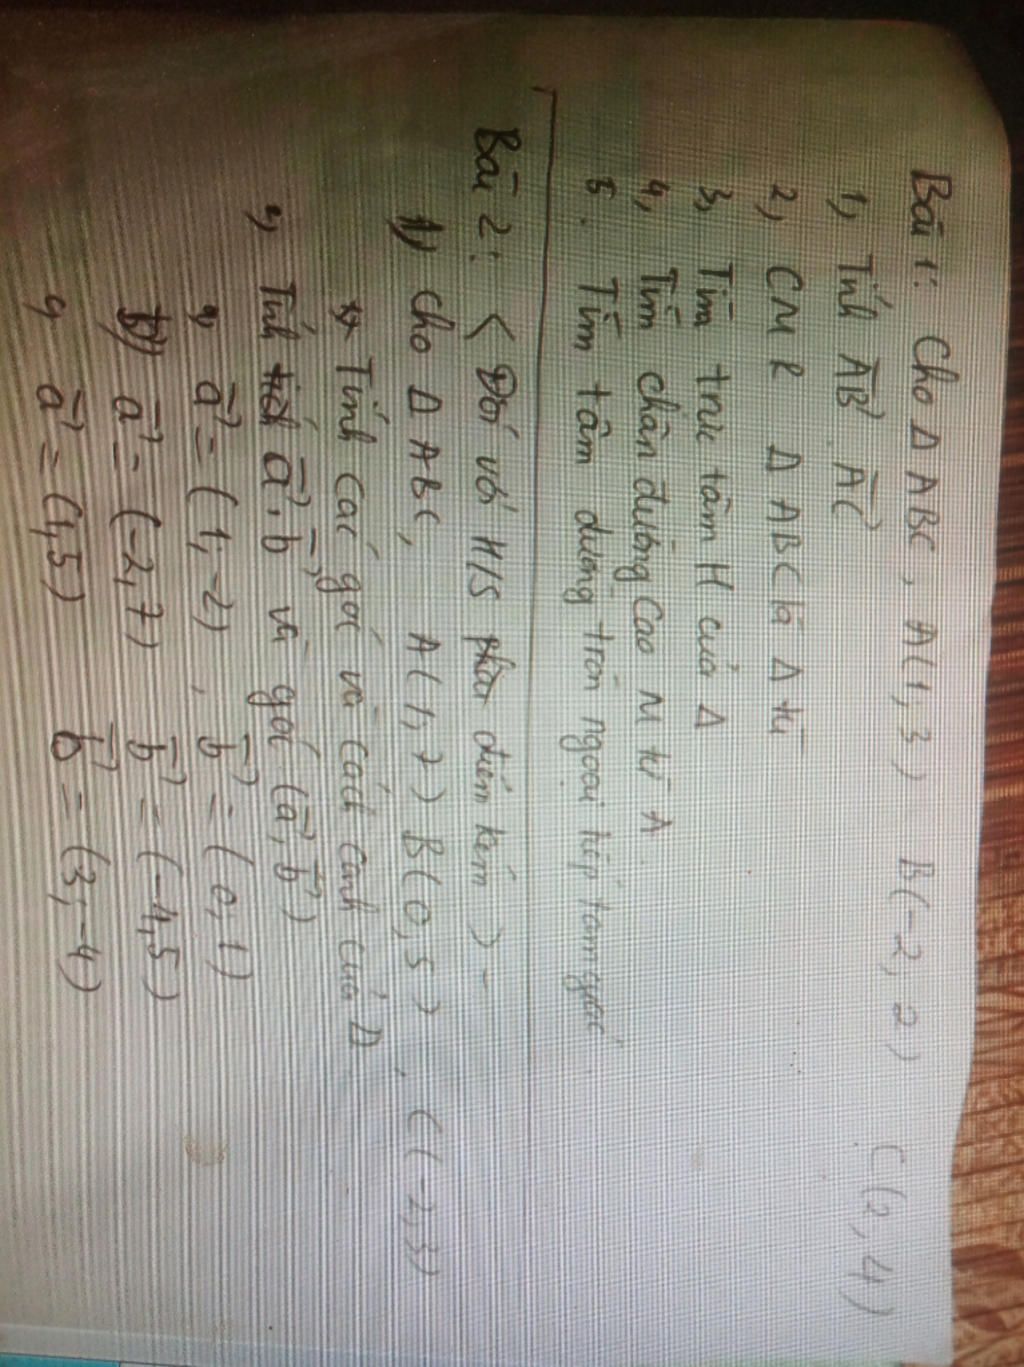 Bài 1: Cho Δ ABC, A(1,3) B(-2,2) C(2,4)
1, Tính AB⃗ AC⃗
2, CMR Δ ABC là Δ tù
3, Tìm trực tâm H của Δ
4, Tìm chân đường cao M từ A.
5. Tìm tâm đường tròn ngoại tiếp tam giác.
Bài 2: < Đối với H/S điểm kém > -
1) Cho Δ ABC, A(1,7) B(0,5), C(-2,3)
Tính các góc và các cạnh của Δ
Tính a⃗.b⃗ và góc (a⃗,b⃗)
a⃗ = (1,-2), b⃗ = (0,1)
b) a⃗ = (-2,7) b⃗ = (-1,5)
a⃗ = (1,5) b⃗ = (3,-4)